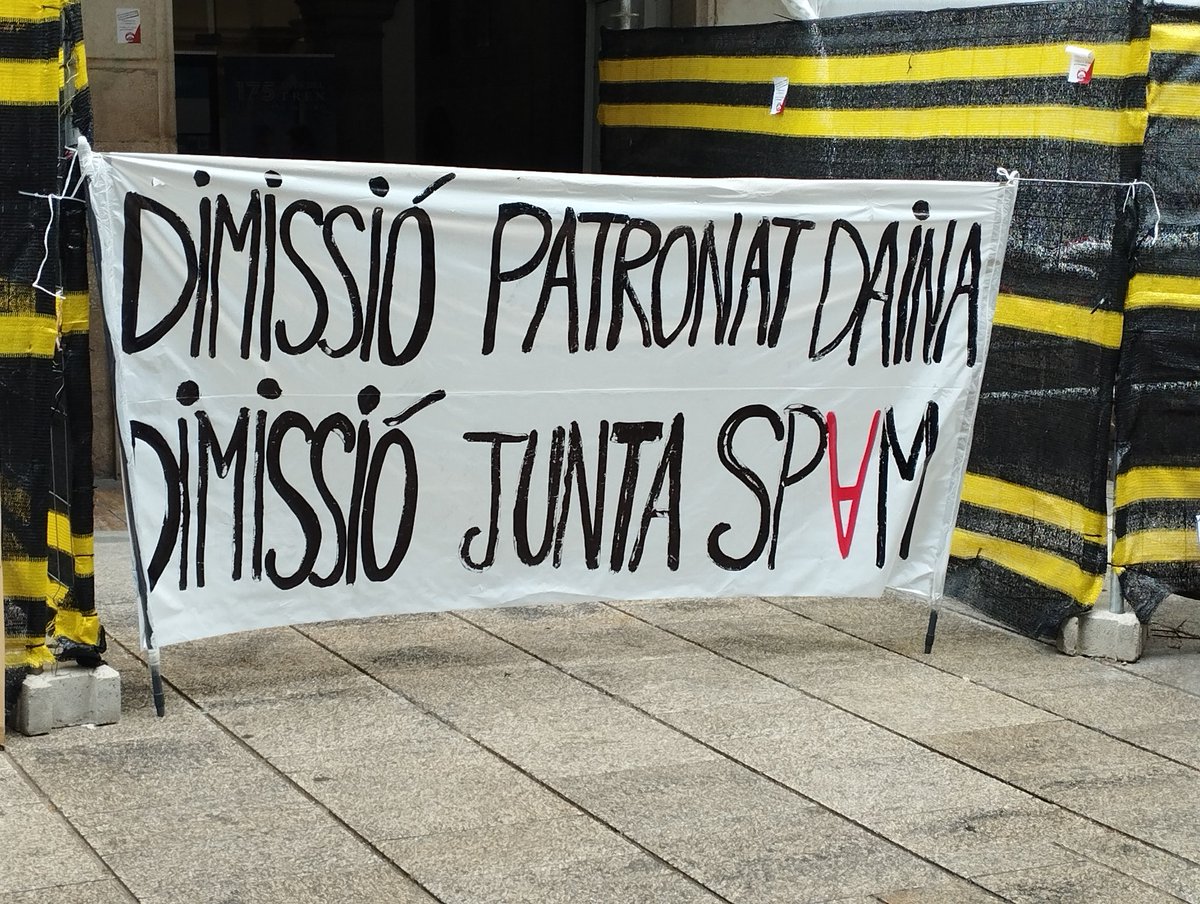 DIMISSIÓ PATRONAT DAINA
DIMISSIÓ JUNTA SPAM